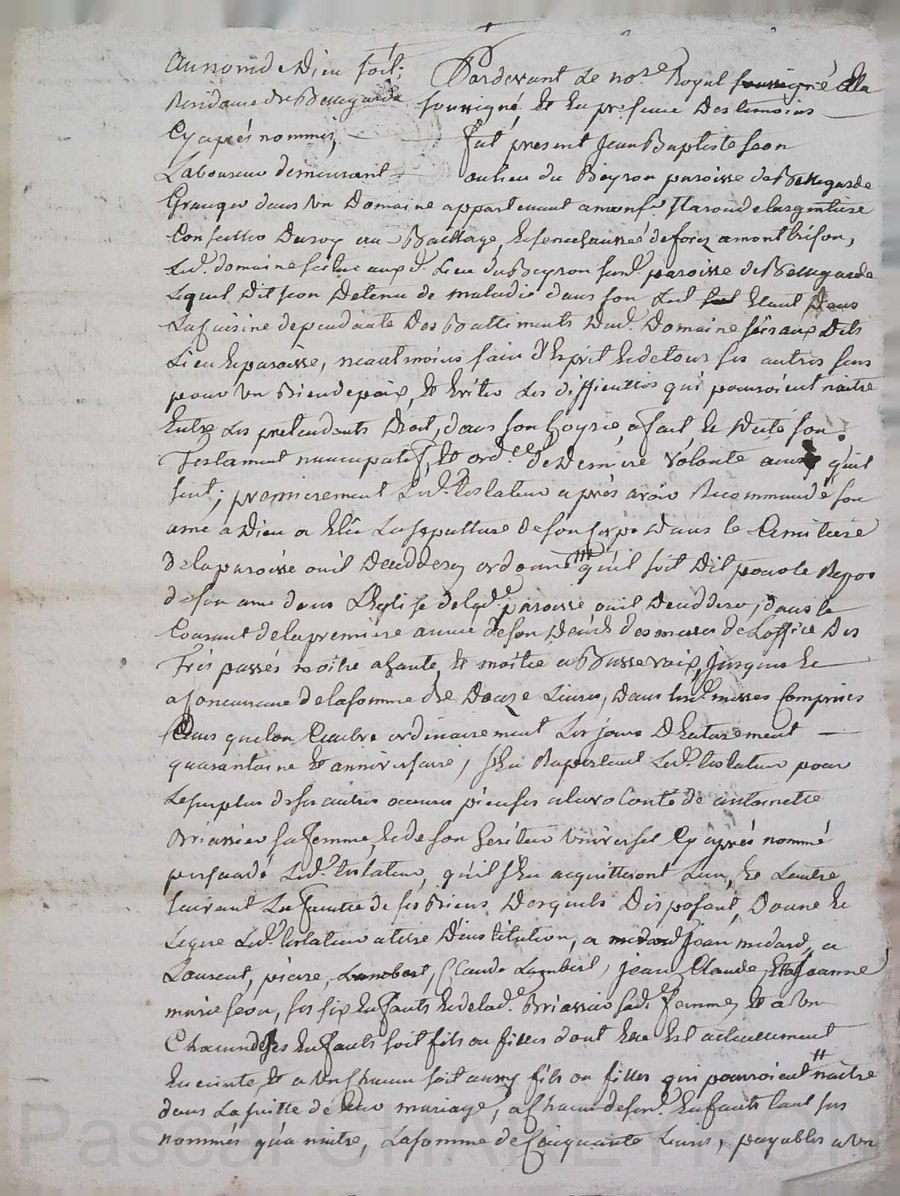 au nom de Dieu soit; Pardevant Le no.re Royal soussigné à la
Residance de Bellegarde soussigné, Et En presence Des temoins
Cy après nommés, fut present Jean Baptiste Seon
Laboureur demeurant au lieu du Beyron paroisse de Bellegarde
Granger dans Un Domaine appartenant a monsr. Delargentiere
Conseillier Du roy au Bailliage, Et senechaussée de forez a montbrison,
Led. domaine scitué aux d. Lieu du Beyron sus d. paroisse de Bellegarde
Lequel Dit Seon Detenu de maladie dans son Lit Etant Dans
La Cuisine dependante Des Battiments dud. Domaine scis aux Dits
Lieu Et paroisse, neantmoins sain D'Esprit Et de tous ses autres sens
pour Un Bien de paix, Et Eviter Les difficultés qui pouroient naitre
Entre Les pretendants Droit, dans son hoyrie, a fait Et Dicté son
Testament nuncupatif, Et ord.ce de Derniere Volonté ainsy qu'il
suit; premierement Led. testateur après avoir Recommandé son
ame a Dieu a Elû La sepulture de son Corps Dans le Cimitiere
De la paroisse ou il Deceddera, ordonne qu'il soit Dit pour le Repos
de son ame dans L'Eglise de lad.e paroisse ou il Deceddera, dans le
Courant de la premiere année de son Decès des messes de L'office Des
Trépassés moitié a haute, Et moitié a Basse voix, Jusques Et
a Concurrance de la somme de Douze Livres, Dans lesd. messes Comprises
Celles que l'on Celebre ordinairement Les jours D'Enterrement
quarantaine Et anniversaire, s'En Raportant Led. testateur pour
Le surplus de ses autres œuvres pieuses a la volonté de antoinette
Briassier sa femme, Et de son heritier Universel Cy après nommé
persuadé Led. testateur, qu'il s'En acquitteront L'un, Et L'autre
suivant La faculté de ses Biens Desquels Disposant, Donne Et
Legue Led. testateur a titre D'institution, a Jean medard, a
Laurent, pierre, Claude Lambert, jean Claude, Et a Jeanne
marie Seon, ses six Enfants Et de lad.e Briassier sad.e femme, Et a Un
Chacun des Enfants soit fils ou filles dont Elle Est actuellement
Enceinte Et a Un Chacun soit aussy fils ou filles qui pourroient naitre
dans La suitte de leur mariage, a Chacun de sesd. Enfants tant jus
nommés qu'a naitre, La somme de Cinquante Livres, payables a Un
Pascal CHAREYRON